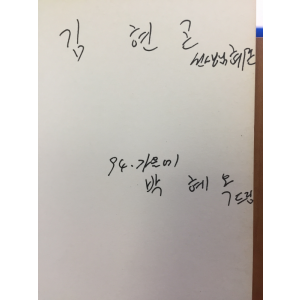 김 현 곤
선생님 혜존
94. 가을에
박 혜 옥 드림